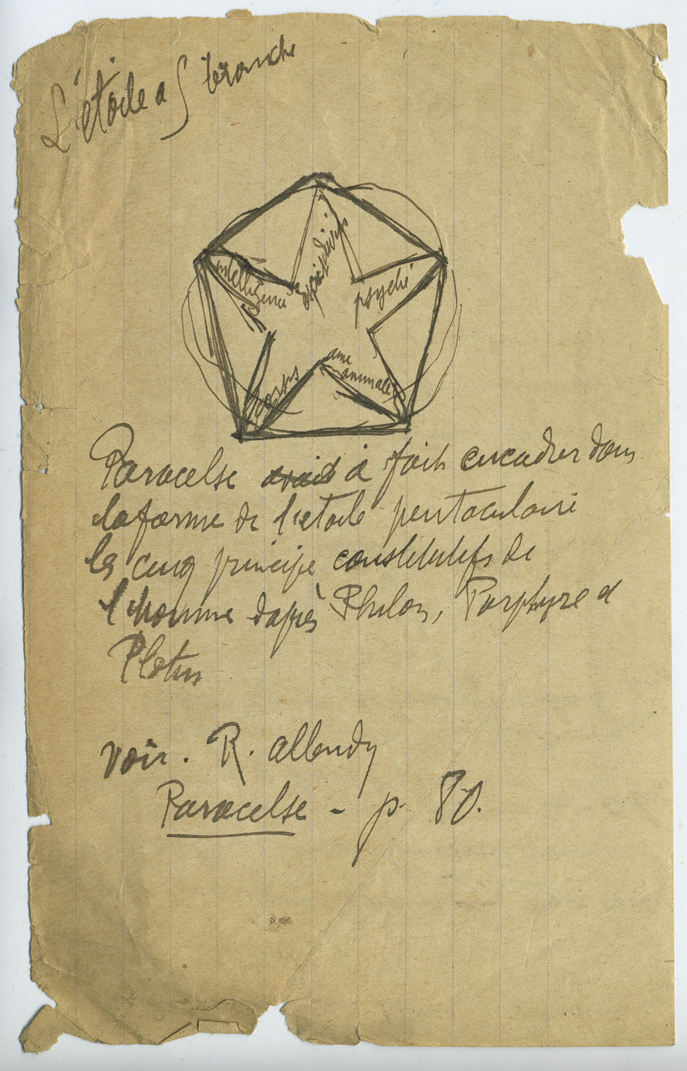 L'étoile a 5 branche
esprit divin
intelligence
psyché
corps
ame
animale
Paracelse avait a fait encadrer dans
la forme de l'etoile pentaculaire
les cinq principe constitutifs de
l'homme dapiès Philon, Porphyre et
Plotin
voir. R. Allendy
Paracelse - p. 80.